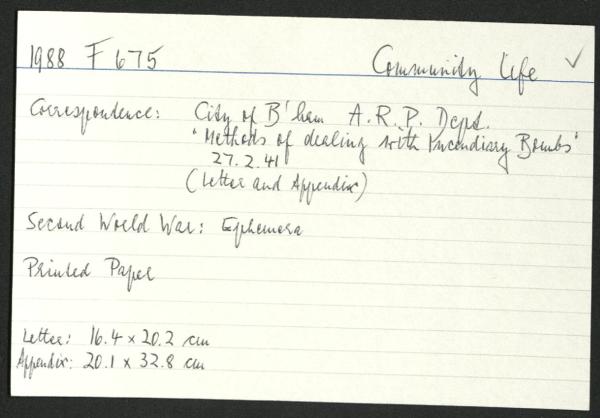 1988 F 675 Community Life ✓
Correspondence: City of B'ham A.R.P. Dept.
'Methods of dealing with Incendiary Bombs'
27.2.41
(Letter and Appendix)
Second World War: Ephemera
Printed Paper
Letter: 16.4 x 20.2 cm
Appendix: 20.1 x 32.8 cm